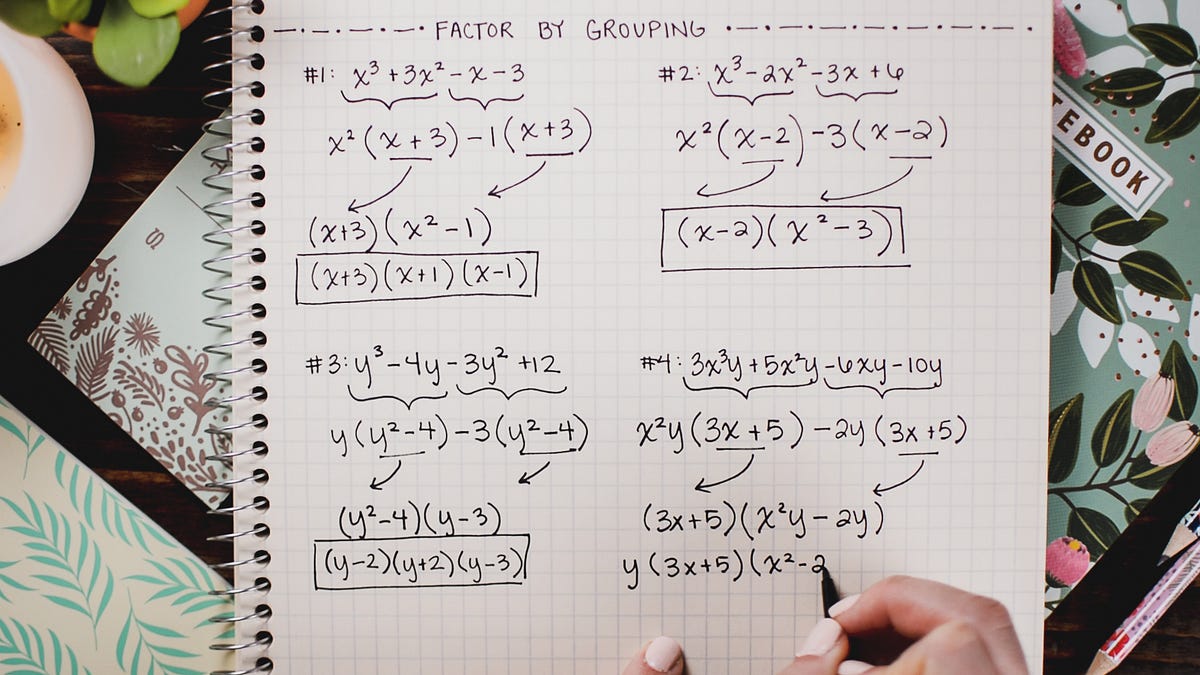 FACTOR BY GROUPING
#1: x³ + 3x² - x - 3
x² (x + 3) - 1 (x + 3)
(x+3) (x² - 1)
(x+3) (x+1) (x-1)
#2: x³ - 2x² - 3x + 6
x² (x-2) - 3 (x-2)
(x-2) (x² - 3)
#3: y³ - 4y - 3y² + 12
y (y² - 4) - 3 (y² - 4)
(y² - 4) (y - 3)
(y-2) (y+2) (y-3)
#4: 3x³y + 5x²y - 6xy - 10y
x²y (3x + 5) - 2y (3x + 5)
(3x+5) (x²y - 2y)
y (3x+5) (x² - 2
TEBOOK